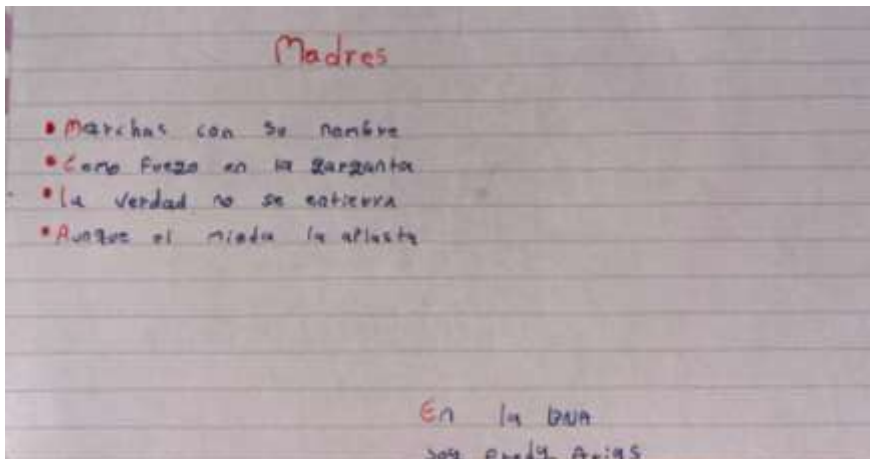 Madres
• Marchas con su nombre
• Como fuego en la garganta
• La verdad no se entierra
• Aunque el miedo la aplasta
En la
soy Arias